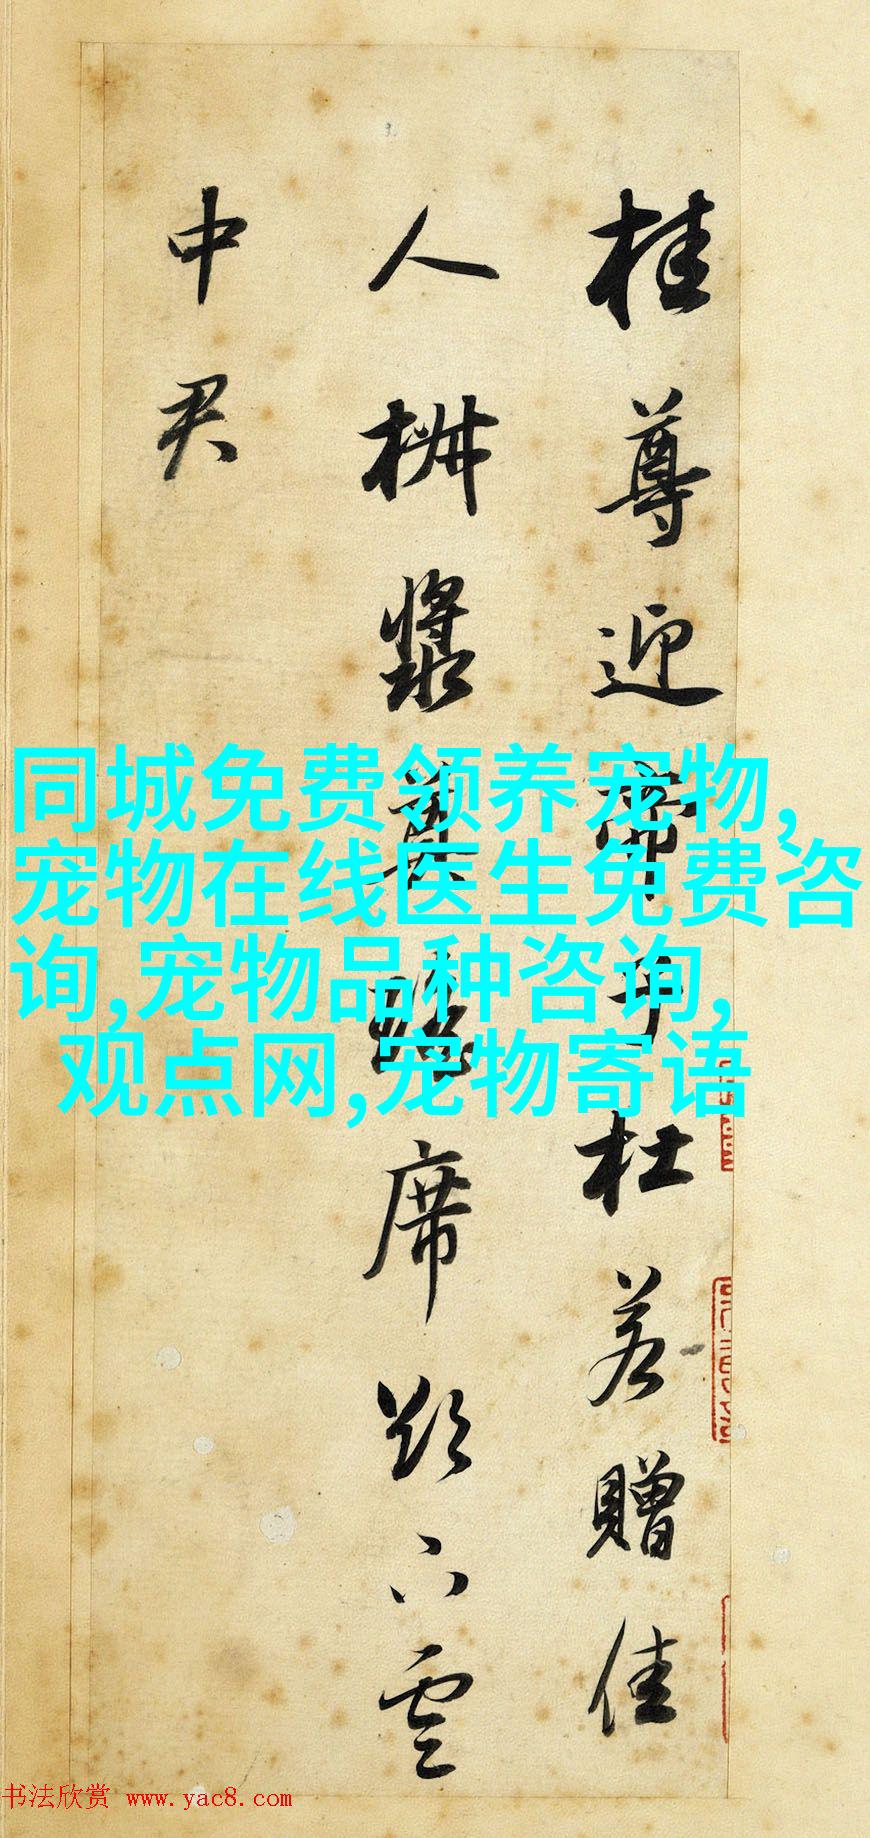 桂尊迎帝子杜若赠佳
人椒浆奠瑶席欲下云
中君
同城免费领养宠物,
宠物在线医生免费咨
询,宠物品种咨询,
观点网,宠物寄语
书法欣赏 www.yac8.com